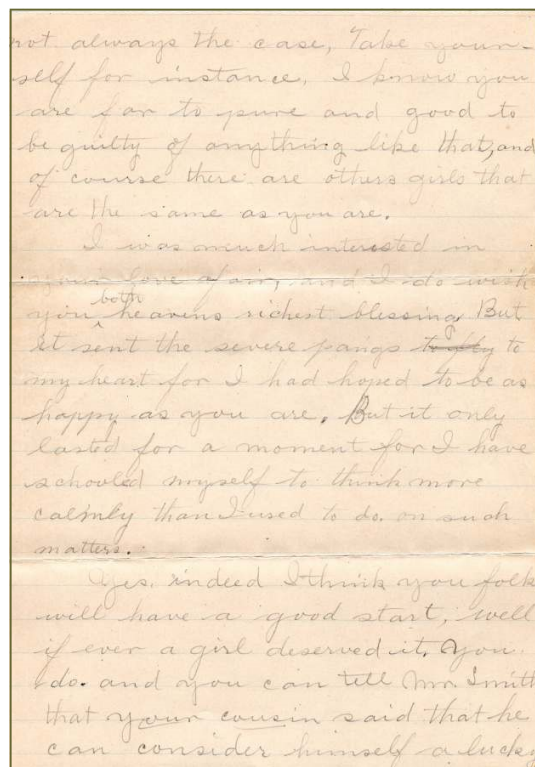 not always the case, Take your-
self for instance, I know you
are far to pure and good to
be guilty of anything like that, and
of course there are others girls that
are the same as you are.
I was much interested in
your love afair, and I do wish
you both heavens richest blessing. But
it sent the severe pangs to
my heart for I had hoped to be as
happy as you are. But it only
lasted for a moment for I have
schooled myself to think more
calmly than I used to do. on such
matters.
Yes, indeed I think you folk
will have a good start, well
if ever a girl deserved it, you
do. and you can tell Mr. Smith
that your cousin said that he
can consider himself a lucky